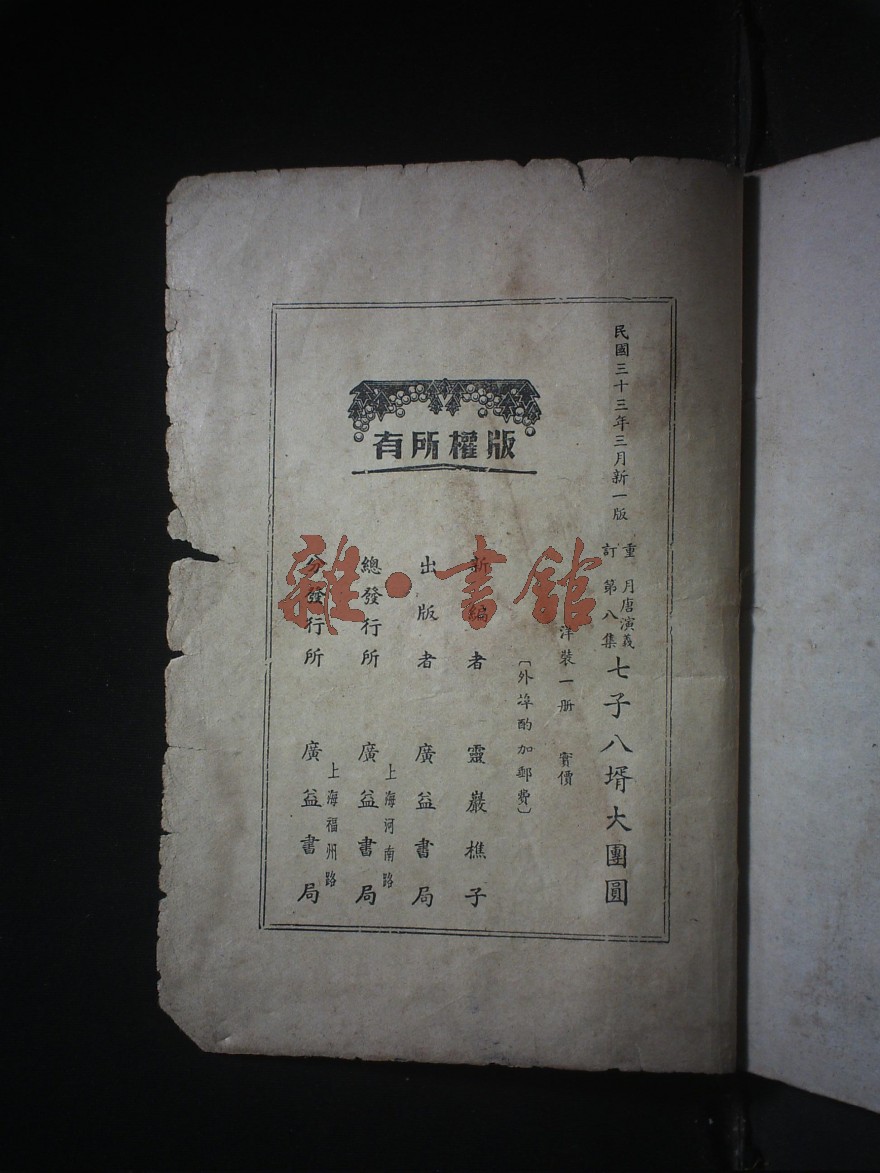 民國三十三年三月新一版
重訂
月唐演義
第八集
七子八壻大團圓
洋裝一册 實價
〔外埠酌加郵費〕
版權所有
新編者 靈巖樵子
出版者 廣益書局
上海河南路
總發行所 廣益書局
上海福州路
分發行所 廣益書局
雜·書館